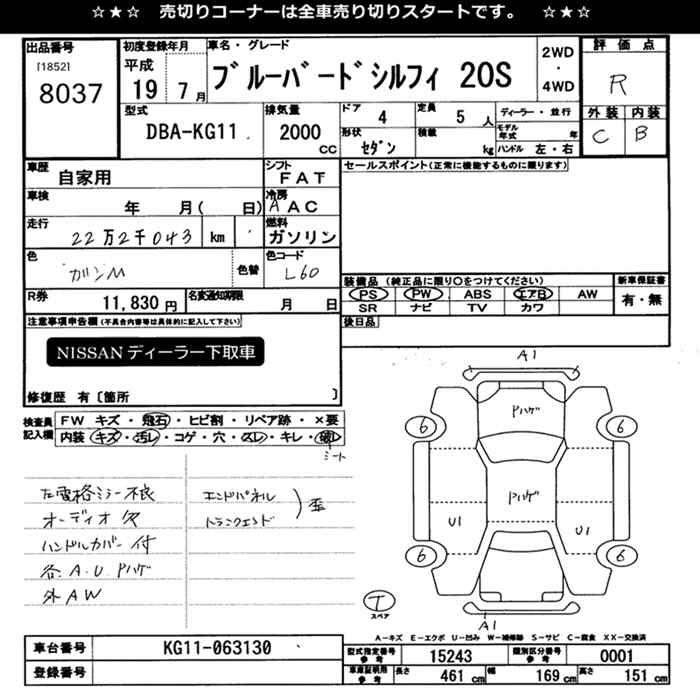 ☆★☆ 売切りコーナーは全車売り切りスタートです。 ☆★☆
出品番号
[1852]
8037
初度登録年月
平成
19 7月
車名・グレード
ブルーバードシルフィ 20S
2WD
・
4WD
評価点
R
外装 内装
C B
型式
DBA-KG11
排気量
2000 cc
ドア
4
定員
5人
ディーラー・並行
形状
セダン
積載
kg
モデル年式 年
ハンドル 左・右
車歴
自家用
シフト
FAT
セールスポイント(正常に機能するものに限ります)
車検
年 月( 日)
冷房
A AC
走行
22万2千043 km
燃料
ガソリン
色
ガンM
色替
色コード
L60
装備品 (純正品に限り○をつけてください)
PS PW ABS エアB AW
SR ナビ TV カワ
新車保証書
有・無
R券
11,830円
名変通知期限
月 日
後日品
注意事項申告欄(不具合内容等は具体的に記入して下さい)
NISSANディーラー下取車
修復歴 有〔箇所 〕
検査員記入欄
FW キズ・飛石・ヒビ割・リペア跡・×要
内装 キズ・汚レ・コゲ・穴・スレ・キレ・破レ
シート
左電格ミラー不良
オーディオ欠
ハンドルカバー付
各.A.U.Pハゲ
外AW
エンドパネル
トランクエンド
歪
A1
Pハゲ
6 6
Pハゲ
U1 U1
6 6
T
スペア
A1
A-キズ E-エクボ U-凹み W-補修跡 S-サビ C-腐食 XX-交換済
車台番号
KG11-063130
登録番号
型式指定番号参考
15243
類別区分番号参考
0001
車庫証明用参考
長さ 461cm 幅 169cm 高さ 151cm